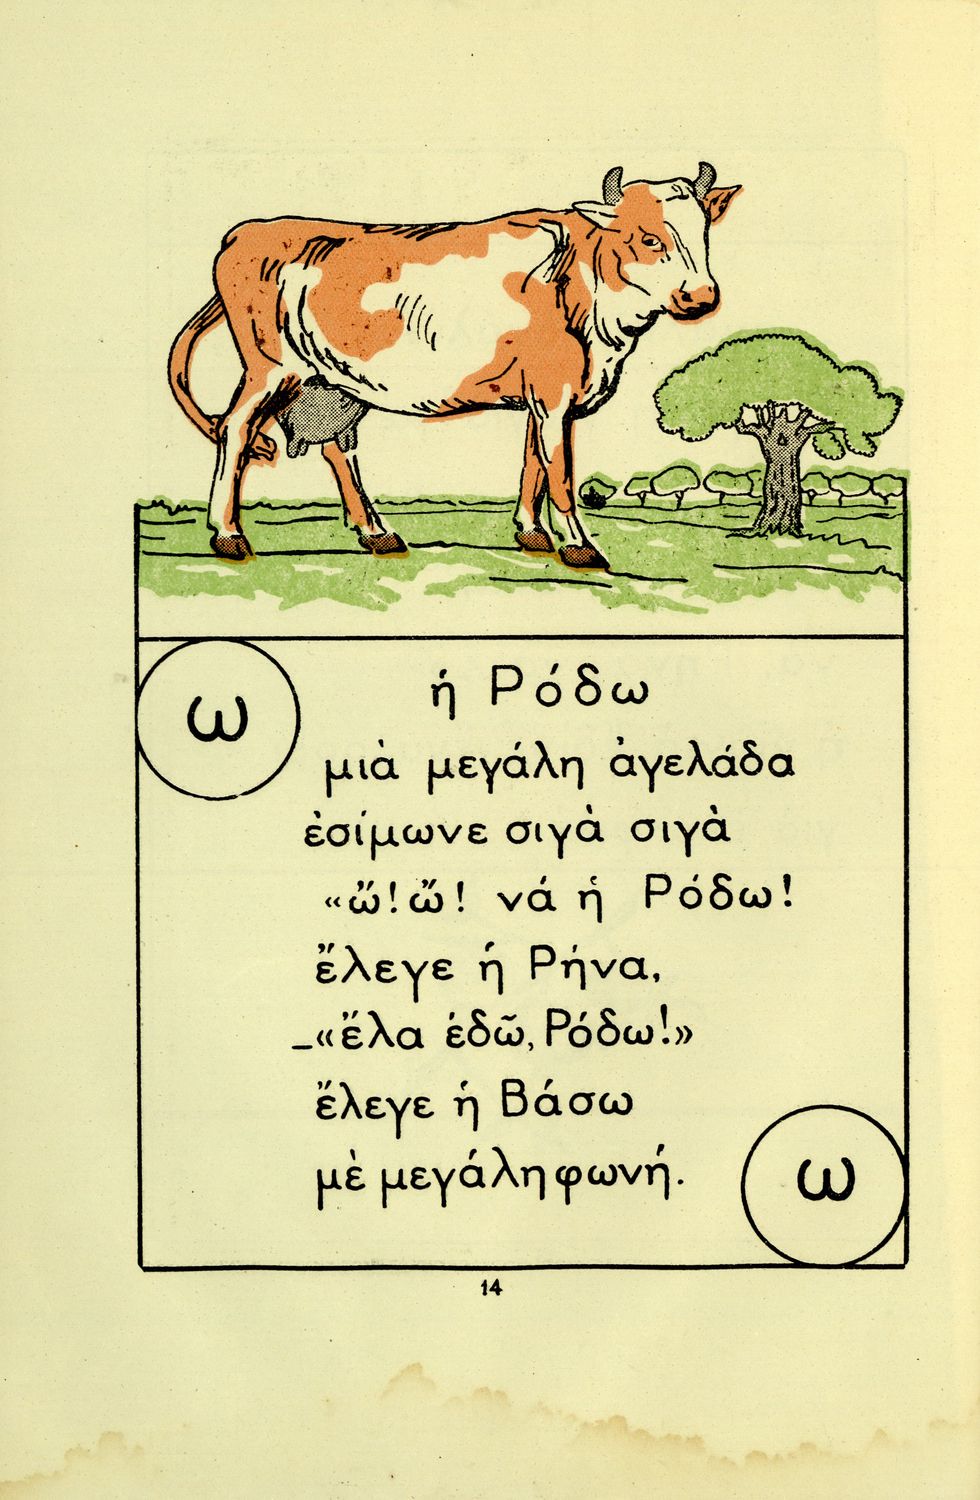 ω
ἡ Ρόδω
μιὰ μεγάλη ἀγελάδα
ἐσίμωνε σιγὰ σιγὰ
«ὤ! ὤ! νά ἡ Ρόδω!
ἔλεγε ἡ Ρήνα,
–«ἔλα ἐδῶ, Ρόδω!»
ἔλεγε ἡ Βάσω
μὲ μεγάλη φωνή.
ω
14